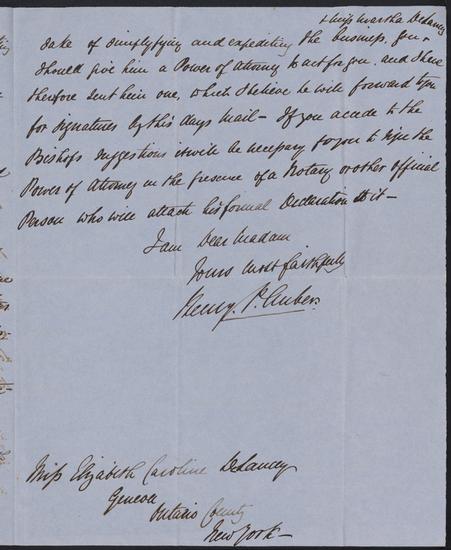 & Miss Martha DeLancey
sake of simplifying and expediting the business, you
should give him a Power of Attorney to act for you, and I have
therefore sent him one, which I believe he will forward to you
for signatures by this days mail – If you accede to the
Bishops suggestions it will be necessary for you to sign the
Power of Attorney in the presence of a Notary or other official
Person who will attach his formal Declaration to it –
I am Dear Madam
Yours most faithfully
Henry P. Aubers
Miss Elizabeth Caroline DeLancey
Geneva
Ontario County
New York –